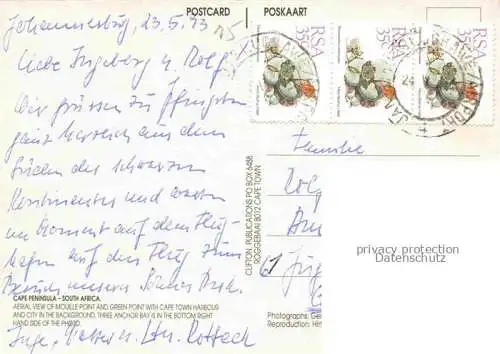 POSTCARD POSKAART
Johannesburg, 23.5.93
Liebe Ingeborg u. Rolf,
Wir grüssen zu Pfingsten
ganz herzlich aus dem
Süden des schwarzen
Kontinentes und warten
im Moment auf dem Flug-
hafen auf den Flug zum
Besuch unseres Sohnes Dirk.
CAPE PENINSULA – SOUTH AFRICA.
AERIAL VIEW OF MOUILLE POINT AND GREEN POINT WITH CAPE TOWN HARBOUR
AND CITY IN THE BACKGROUND. THREE ANCHOR BAY IS IN THE BOTTOM RIGHT
HAND SIDE OF THE PHOTO.
Inge, u.
CLIFTON PUBLICATIONS PO BOX 6488
ROGGEBAAI 8012 CAPE TOWN
RSA 35c
RSA 35c
RSA 35c
Familie
Rolf
61
privacy protection
Datenschutz
Photographs: Ge
Reproduction: Hir